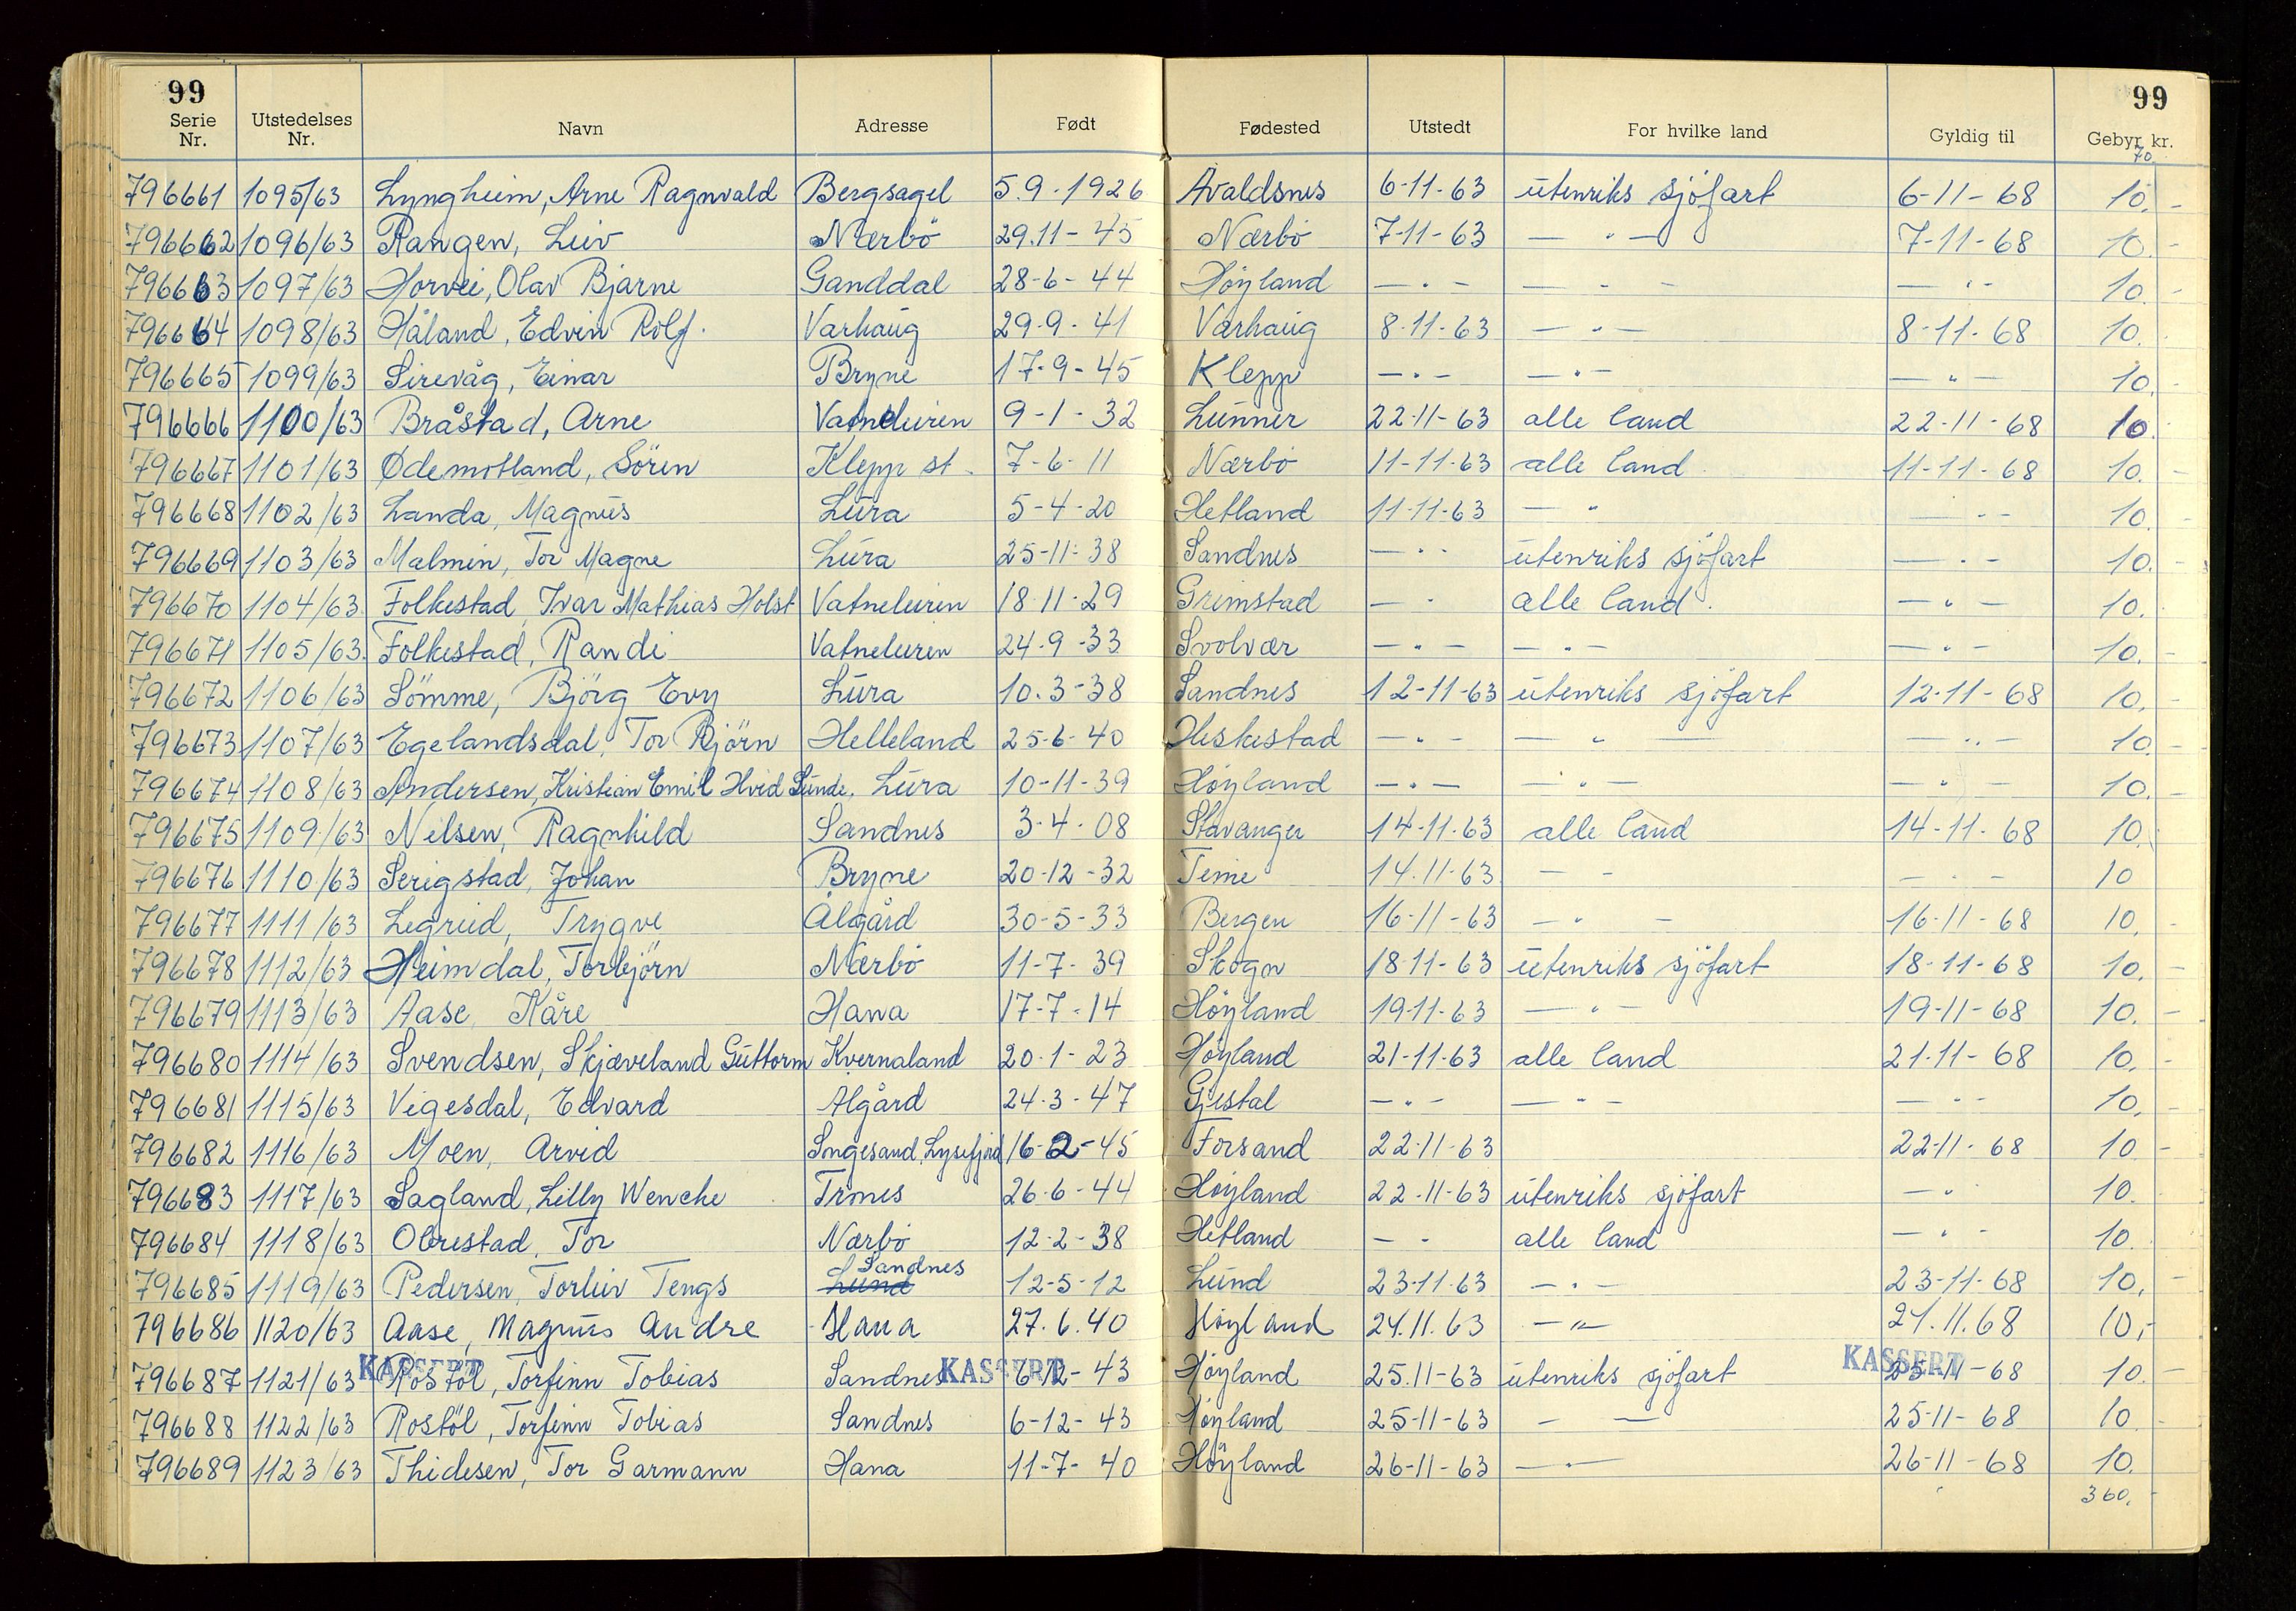 99 99
Serie Nr. Utstedelses Nr. Navn Adresse Født Fødested Utstedt For hvilke land Gyldig til Gebyr kr.
70.
796661 1095/63 Lyngheim, Arne Ragnvald Bergsagel 5.9.-1926 Avaldsnes 6-11-63 utenriks sjöfart 6-11-68 10.-
796662 1096/63 Rangen, Leiv Nærbö 29.11-45 Nærbö 7-11-63 — " — 7-11-68 10.-
796663 1097/63 Horvei, Olav Bjarne Ganddal 28-6-44 Höyland — " — — " — — " — 10.-
796664 1098/63 Håland, Edvin Rolf. Varhaug 29-9-41 Varhaug 8-11-63 — " — 8-11-68 10.
796665 1099/63 Sirevåg, Einar Bryne 17-9-45 Klepp — " — — " — — " — 10.-
796666 1100/63 Bråstad, Arne Vatneleiren 9-1-32 Lunner 22-11-63 alle land 22-11-68 10.
796667 1101/63 Ødemotland, Sören Klepp st. 7-6-11 Nærbö 11-11-63 alle land 11-11-68 10.-
796668 1102/63 Landa, Magnus Lura 5-4-20 Hetland 11-11-63 — " — " — 10.-
796669 1103/63 Malmin, Tor Magne Lura 25-11-38 Sandnes — " - utenriks sjöfart — " — 10.-
796670 1104/63 Folkestad, Ivar Mathias Holst Vatneleiren 18-11-29 Grimstad — " alle land. — " — 10.
796671 1105/63 Folkestad, Randi Vatneleiren 24-9-33 Svolvær — " — — " — — " — 10.-
796672 1106/63 Sömme, Björg Evy Lura 10.3-38 Sandnes 12-11-63 utenriks sjöfart 12-11-68 10.-
796673 1107/63 Egelandsdal, Tor Björn Helleland 25-6-40 Heskestad — " — — " — — " — 10.-
796674 1108/63 Andersen, Kristian Emil Hvid Sunde. Lura 10-11-39 Höyland — " — — " — — " — 10.-
796675 1109/63 Nilsen, Ragnhild Sandnes 3-4-08 Stavanger 14-11-63 alle land 14-11-68 10.
796676 1110/63 Serigstad, Johan Bryne 20-12-32 Time 14.11-63 — " — " — 10
796677 1111/63 Legreid, Trygve Ålgård 30-5-33 Bergen 16-11-63 — " — 16-11-68 10,-
796678 1112/63 Heimdal, Torbjörn Nærbö 11-7-39 Skogn 18-11-63 utenriks sjöfart 18-11-68 10.-
796679 1113/63 Aase Kåre Hana 17-7-14 Höyland 19-11-63 — " — 19-11-68 10.-
796680 1114/63 Svendsen, Skjæveland Guttorm Kvernaland 20-1-23 Höyland 21-11-63 alle land 21-11-68 10.-
796681 1115/63 Vigesdal, Edvard Algård 24-3-47 Gjestal — " — — " — — " - 10,-
796682 1116/63 Moen, Arvid Songesand, Lysefjord 16-2-45 Forsand 22-11-63 22-11-68 10-
796683 1117/63 Sagland, Lilly Wenche Trones 26-6-44 Höyland 22-11-63 utenriks sjöfart — " 10.
796684 1118/63 Obrestad, Tor Nærbö 12-2-38 Hetland — - alle land — " - 10.
796685 1119/63 Pedersen, Torleiv Tengs Lund Sandnes 12-5-12 Lund 23-11-63 — " — 23-11-68 10,-
796686 1120/63 Aase, Magnus Andre Hana 27.6.40 Höyland 24.11.63 — " — 24.11.68 10,-
796687 1121/63 KASSERT Rostöl, Torfinn Tobias Sandnes KASSERT 6-12-43 Höyland 25.11-63 utenriks sjöfart KASSERT 25-11-68 10.-
796688 1122/63 Rostöl, Torfinn Tobias Sandnes 6-12-43 Höyland 25-11-63 - — 25-11-68 10-
796689 1123/63 Thidesen, Tor Garmann Hana 11-7-40 Höyland 26-11-63 — " — 26-11-68 10.
360,-